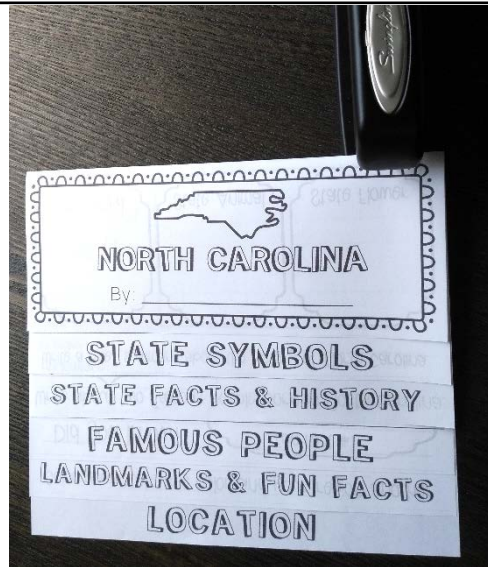 Swingline
NORTH CAROLINA
By:
STATE SYMBOLS
STATE FACTS & HISTORY
FAMOUS PEOPLE
LANDMARKS & FUN FACTS
LOCATION